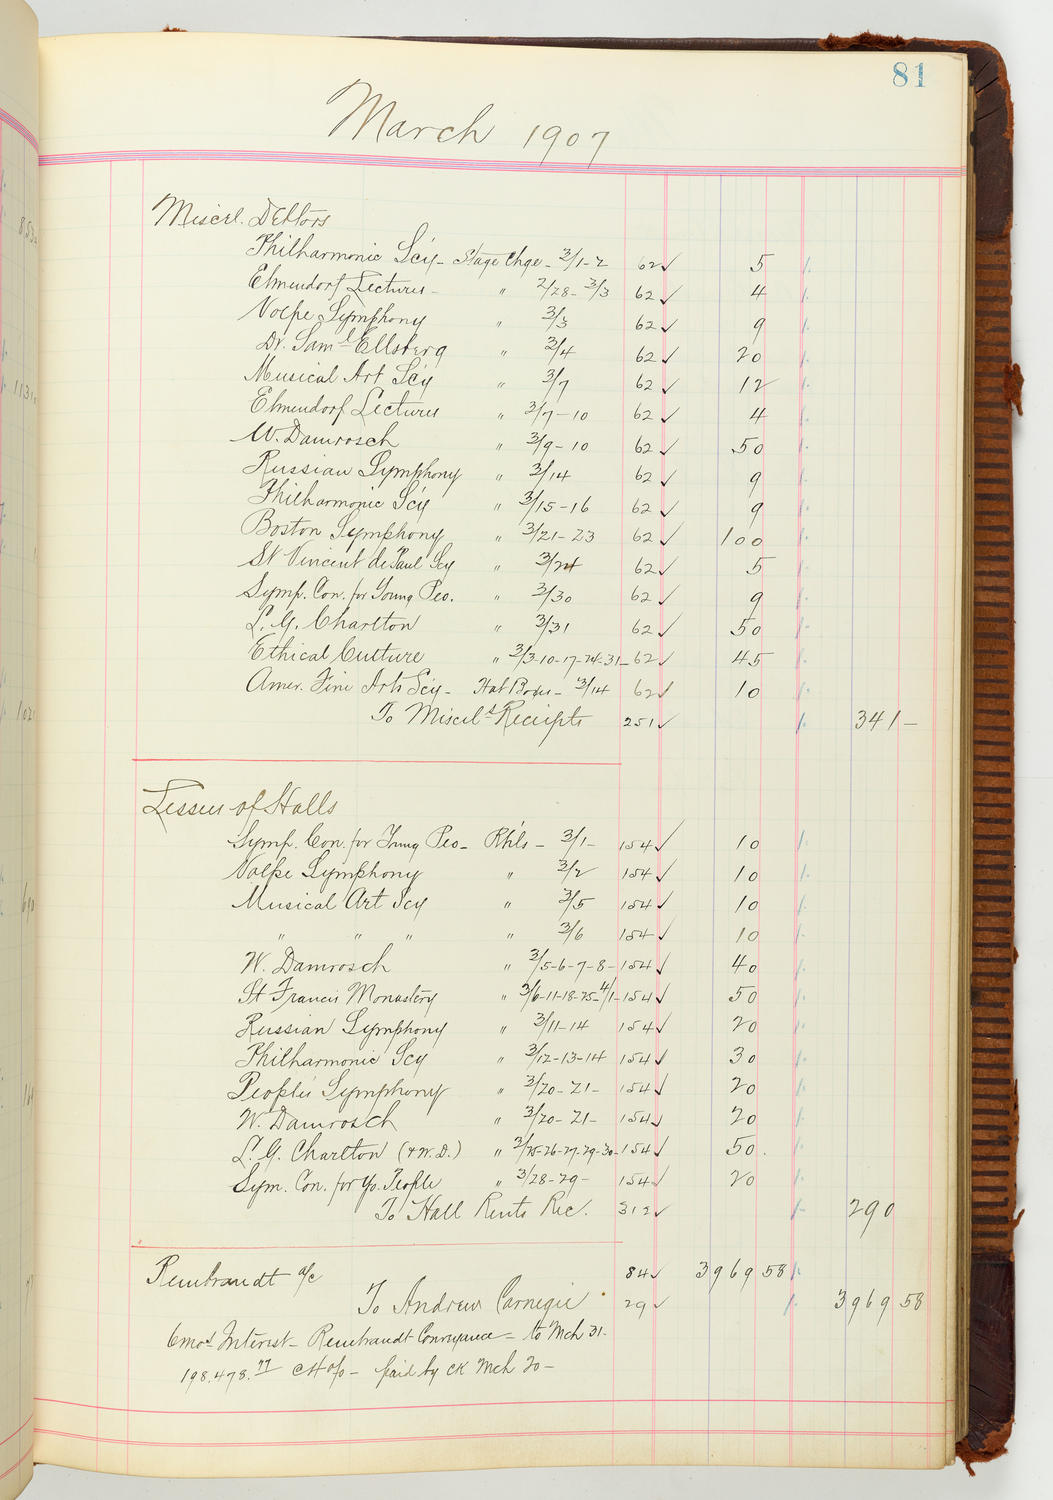 81
March 1907
Miscel. Debtors
Philharmonic Scy - Stage Chge - 3/1-2 62 ✓ 5
Elmendorf Lectures - " 2/28-3/3 62 ✓ 4
Volpe Symphony " 3/3 62 ✓ 9
Dr. Saml Ellsberg " 3/4 62 ✓ 20
Musical Art Scy " 3/7 62 ✓ 12
Elmendorf Lectures " 3/7-10 62 ✓ 4
W. Damrosch " 3/9-10 62 ✓ 50
Russian Symphony " 3/14 62 ✓ 9
Philharmonic Scy " 3/15-16 62 ✓ 9
Boston Symphony " 3/21-23 62 ✓ 100
St Vincent de Paul Scy " 3/24 62 ✓ 5
Symp. Con. for Young Peo. " 3/30 62 ✓ 9
L. G. Charlton " 3/31 62 ✓ 50
Ethical Culture " 3/3-10-17-24-31- 62 ✓ 45
Amer. Fine Arts Scy - Hat Boxes - 3/14 62 ✓ 10
To Miscel's Receipts 251 ✓ 341 -
Lessees of Halls
Symp. Con. for Young Peo - Rhls - 3/1- 154 ✓ 10
Volpe Symphony " 3/2 154 ✓ 10
Musical Art Scy " 3/5 154 ✓ 10
" " " " 3/6 154 ✓ 10
W. Damrosch " 3/5-6-7-8- 154 ✓ 40
St Francis Monastery " 3/6-11-18-25-4/1- 154 ✓ 50
Russian Symphony " 3/11-14 154 ✓ 20
Philharmonic Scy " 3/12-13-14 154 ✓ 30
People's Symphony " 3/20-21- 154 ✓ 20
W. Damrosch " 3/20-21- 154 ✓ 20
L. G. Charlton (+ W.D.) " 3/25-26-27-29-30- 154 ✓ 50.
Sym. Con. for Yo. People " 3/28-29- 154 ✓ 20
To Hall Rents Rec. 312 ✓ 290
Rembrandt a/c 84 ✓ 3969 58
To Andrew Carnegie 29 ✓ 3969 58
6mos Interest - Rembrandt Conveyance - to Mch 31-
198.478.77 @ 4% - paid by CK Mch 20 -